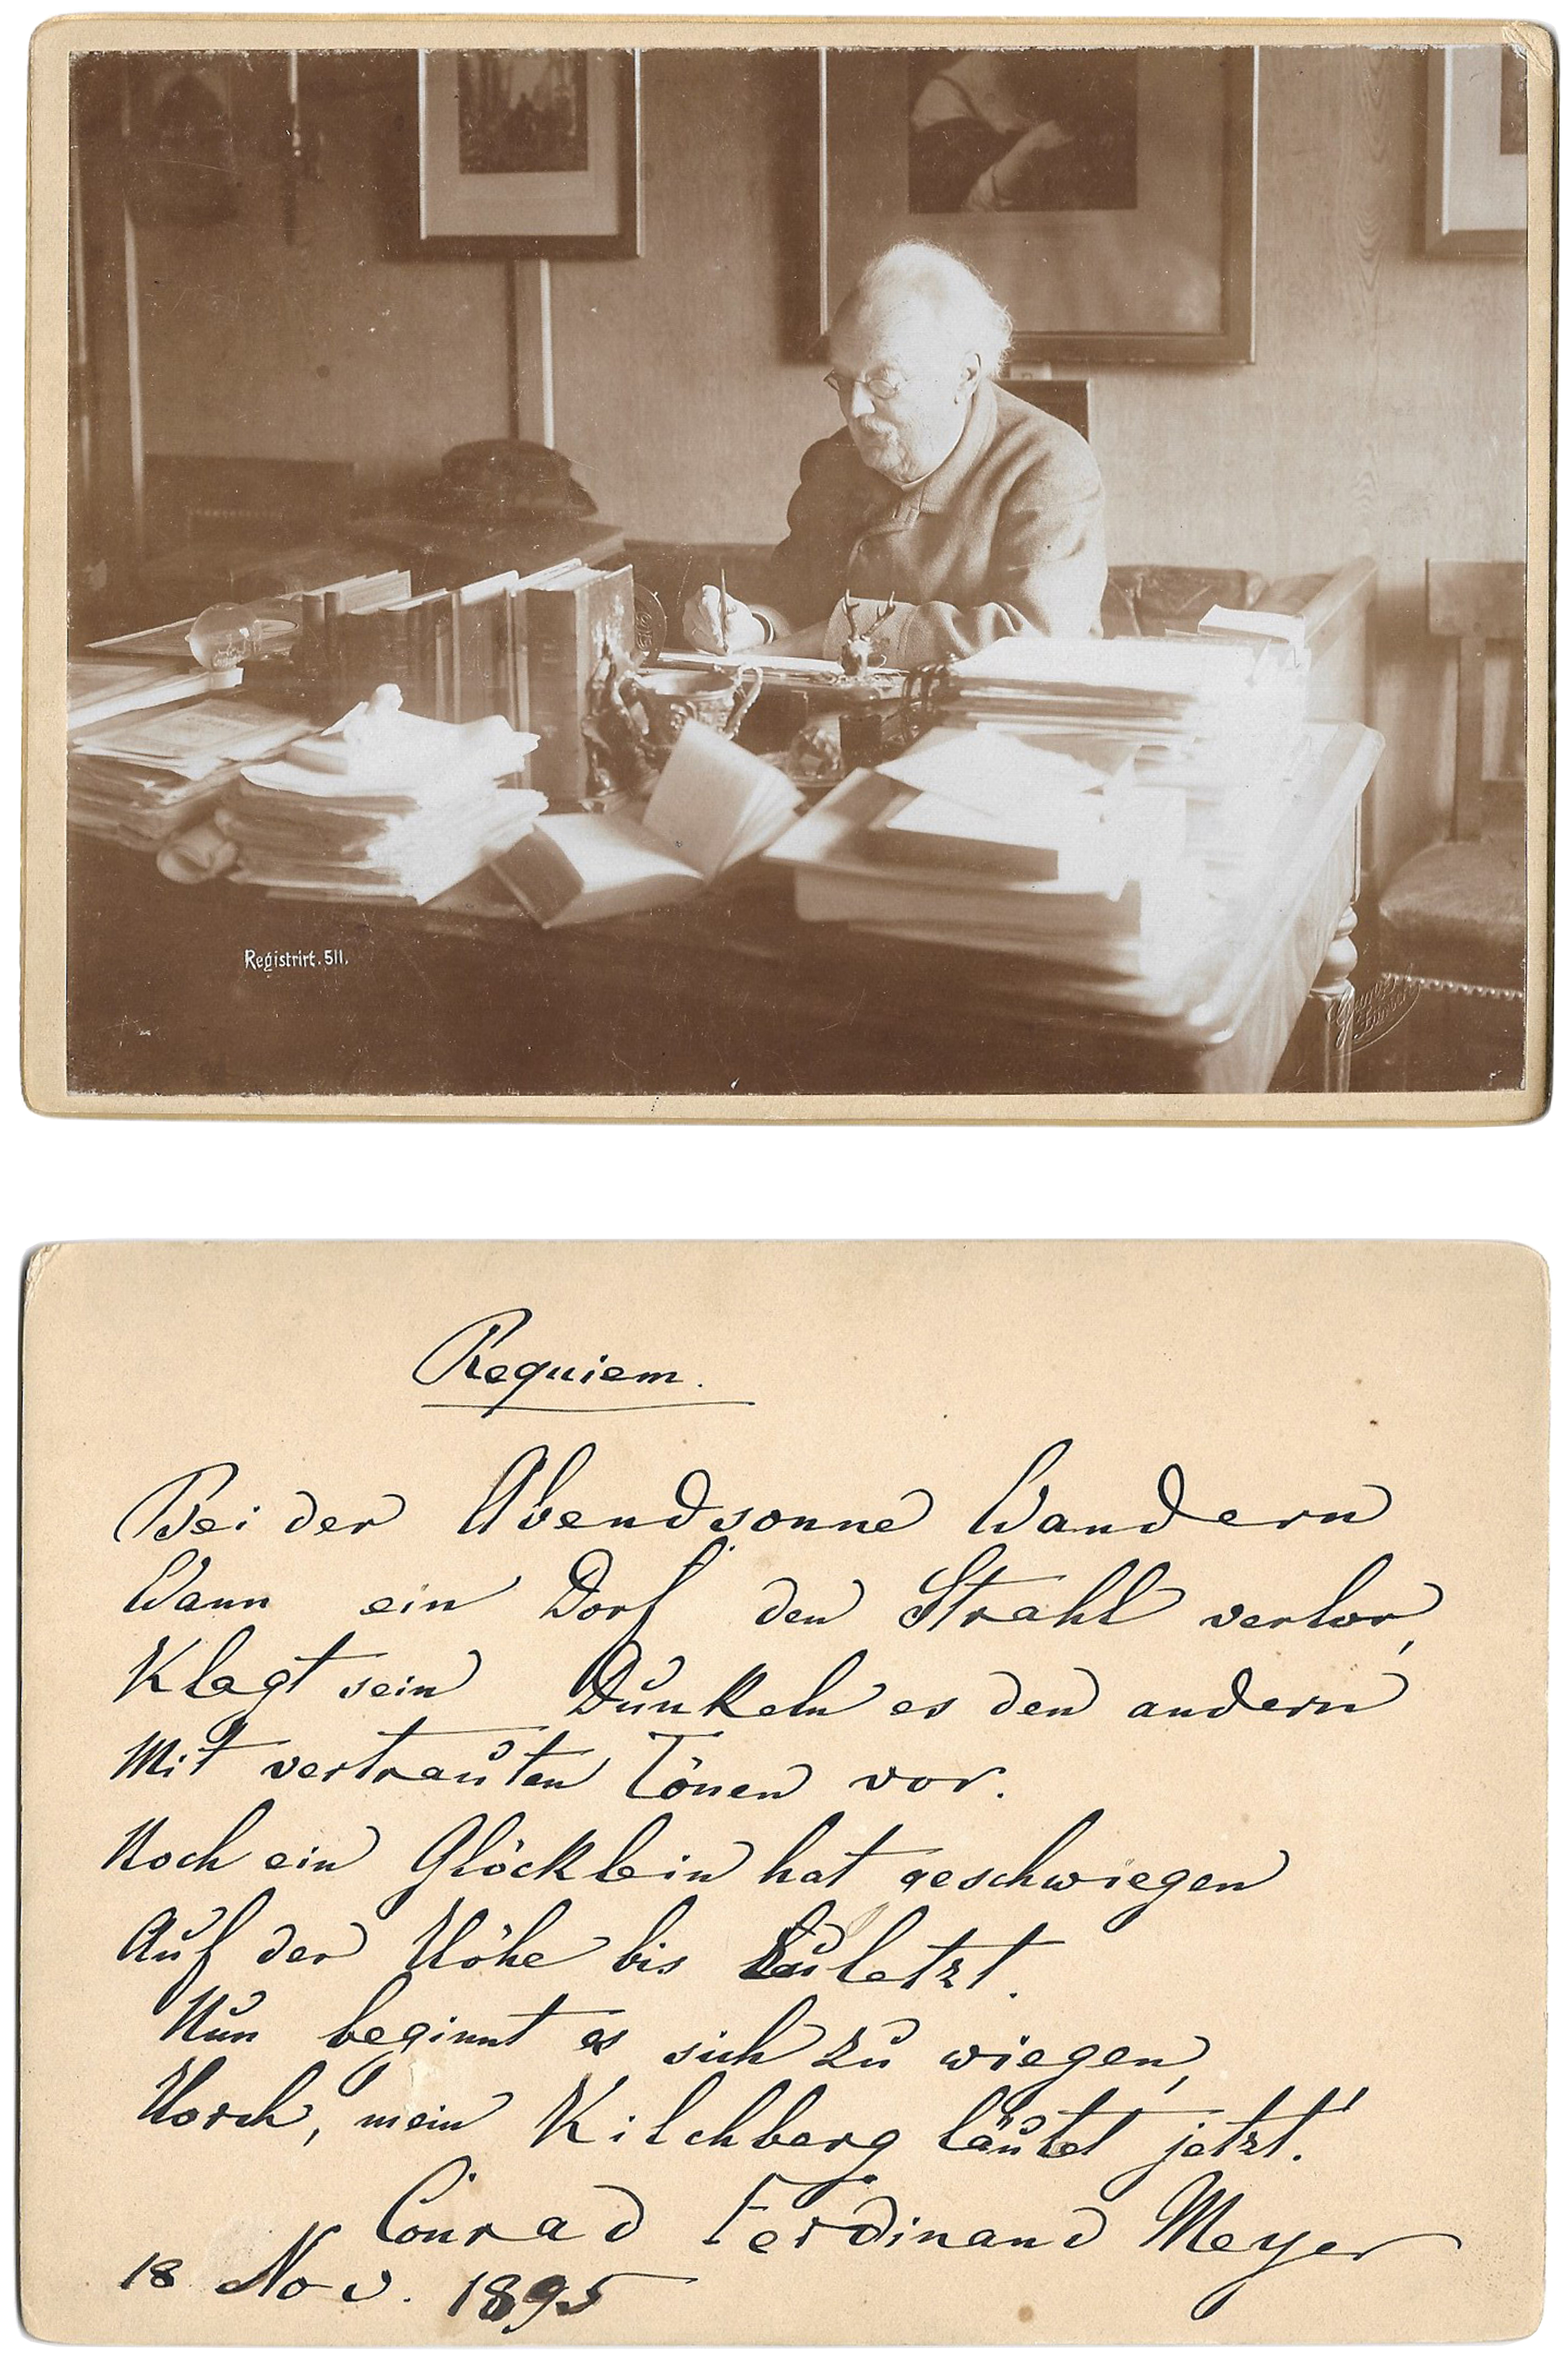 Registrirt. 511.
Requiem.
Bei der Abendsonne Wandern
Wann ein Dorf den Strahl verlor,
Klagt sein Dunkeln es den andern
Mit vertrauten Tönen vor.
Noch ein Glöcklein hat geschwiegen
Auf der Höhe bis zuletzt.
Nun beginnt es sich zu wiegen,
Horch, mein Kilchberg läutet jetzt!
Conrad Ferdinand Meyer
18 Nov. 1895